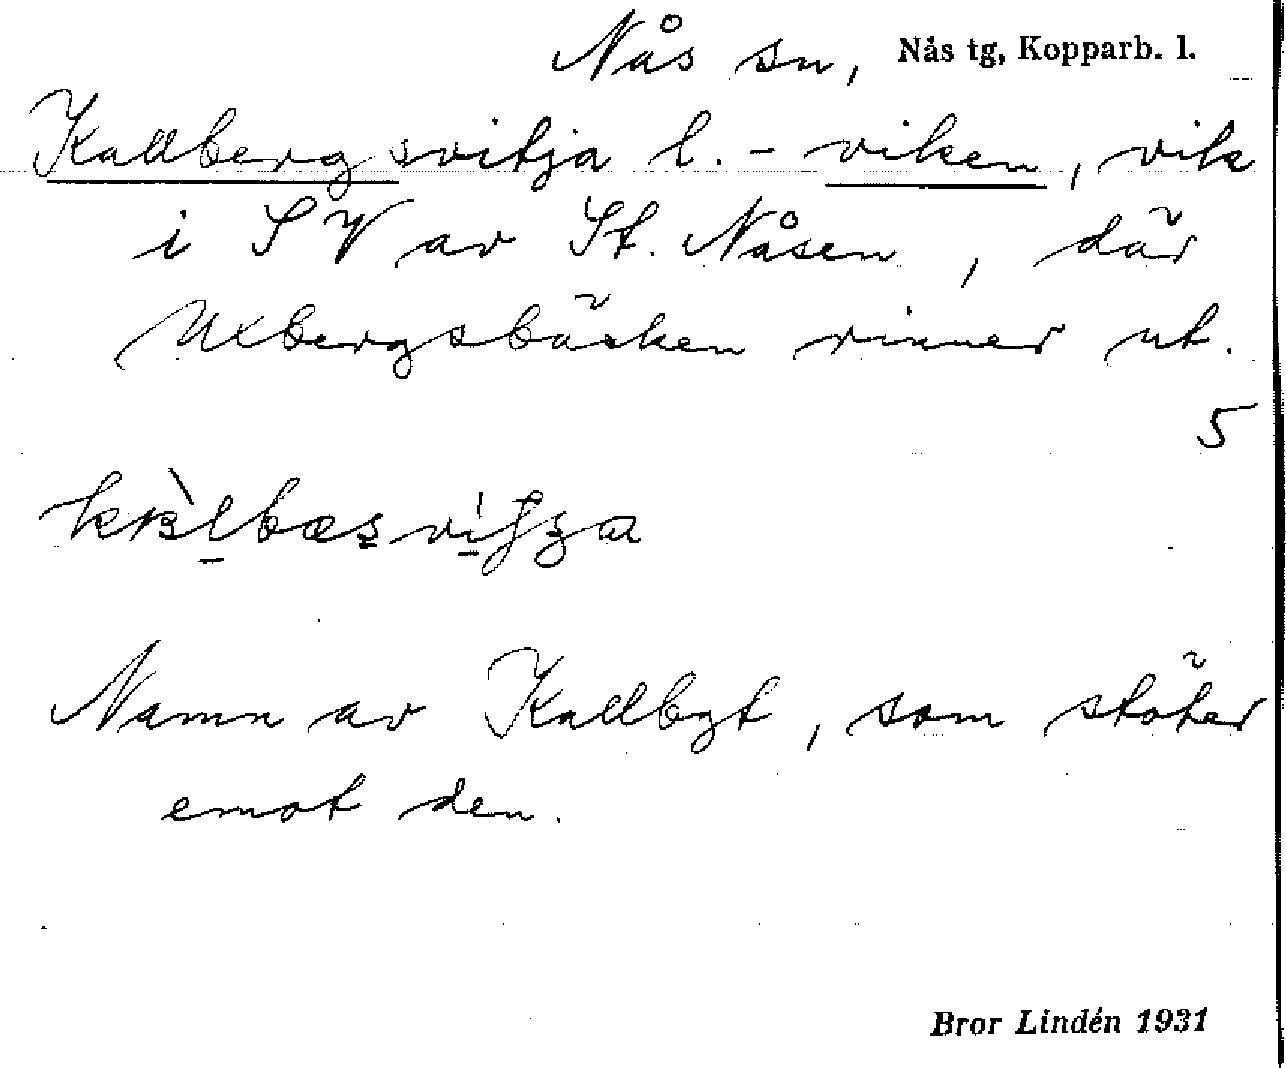 Nås sn, Nås tg, Kopparb. l.
Kallbergsvitja l. - viken, vik
i SV av St. Nåsen, där
Uxbergsbäcken rinner ut.
5
Namn av Kallbgt, som stöter
emot den.
Bror Lindén 1931